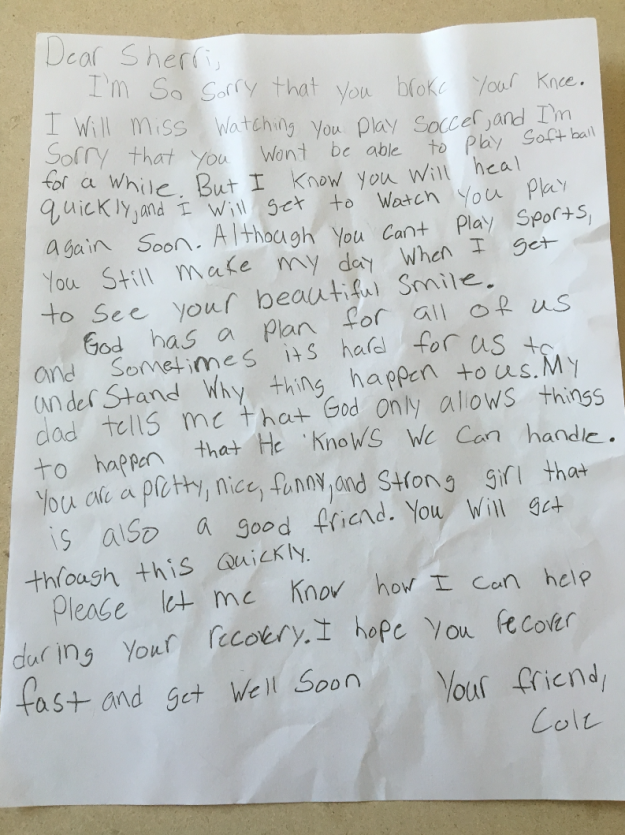 Dear Sherri,
I'm So Sorry that you broke your knee.
I Will miss Watching you Play Soccer, and I'm
Sorry that you Wont be able to Play Softball
for a While. But I know you Will heal
quickly, and I Will get to Watch you Play
again Soon. Although you Cant Play Sports,
you Still make my day When I get
to see your beautiful Smile.
God has a Plan for all of us
and Sometimes its hard for us to
underStand Why thing happen to us. My
dad tells me that God only allows things
to happen that He KnowS We Can handle.
You are a pretty, nice, funny, and Strong girl that
is also a good friend. You Will get
through this Quickly.
Please let me Know how I can help
during Your recovery. I hope You recover
fast and get Well Soon
Your friend,
Cole